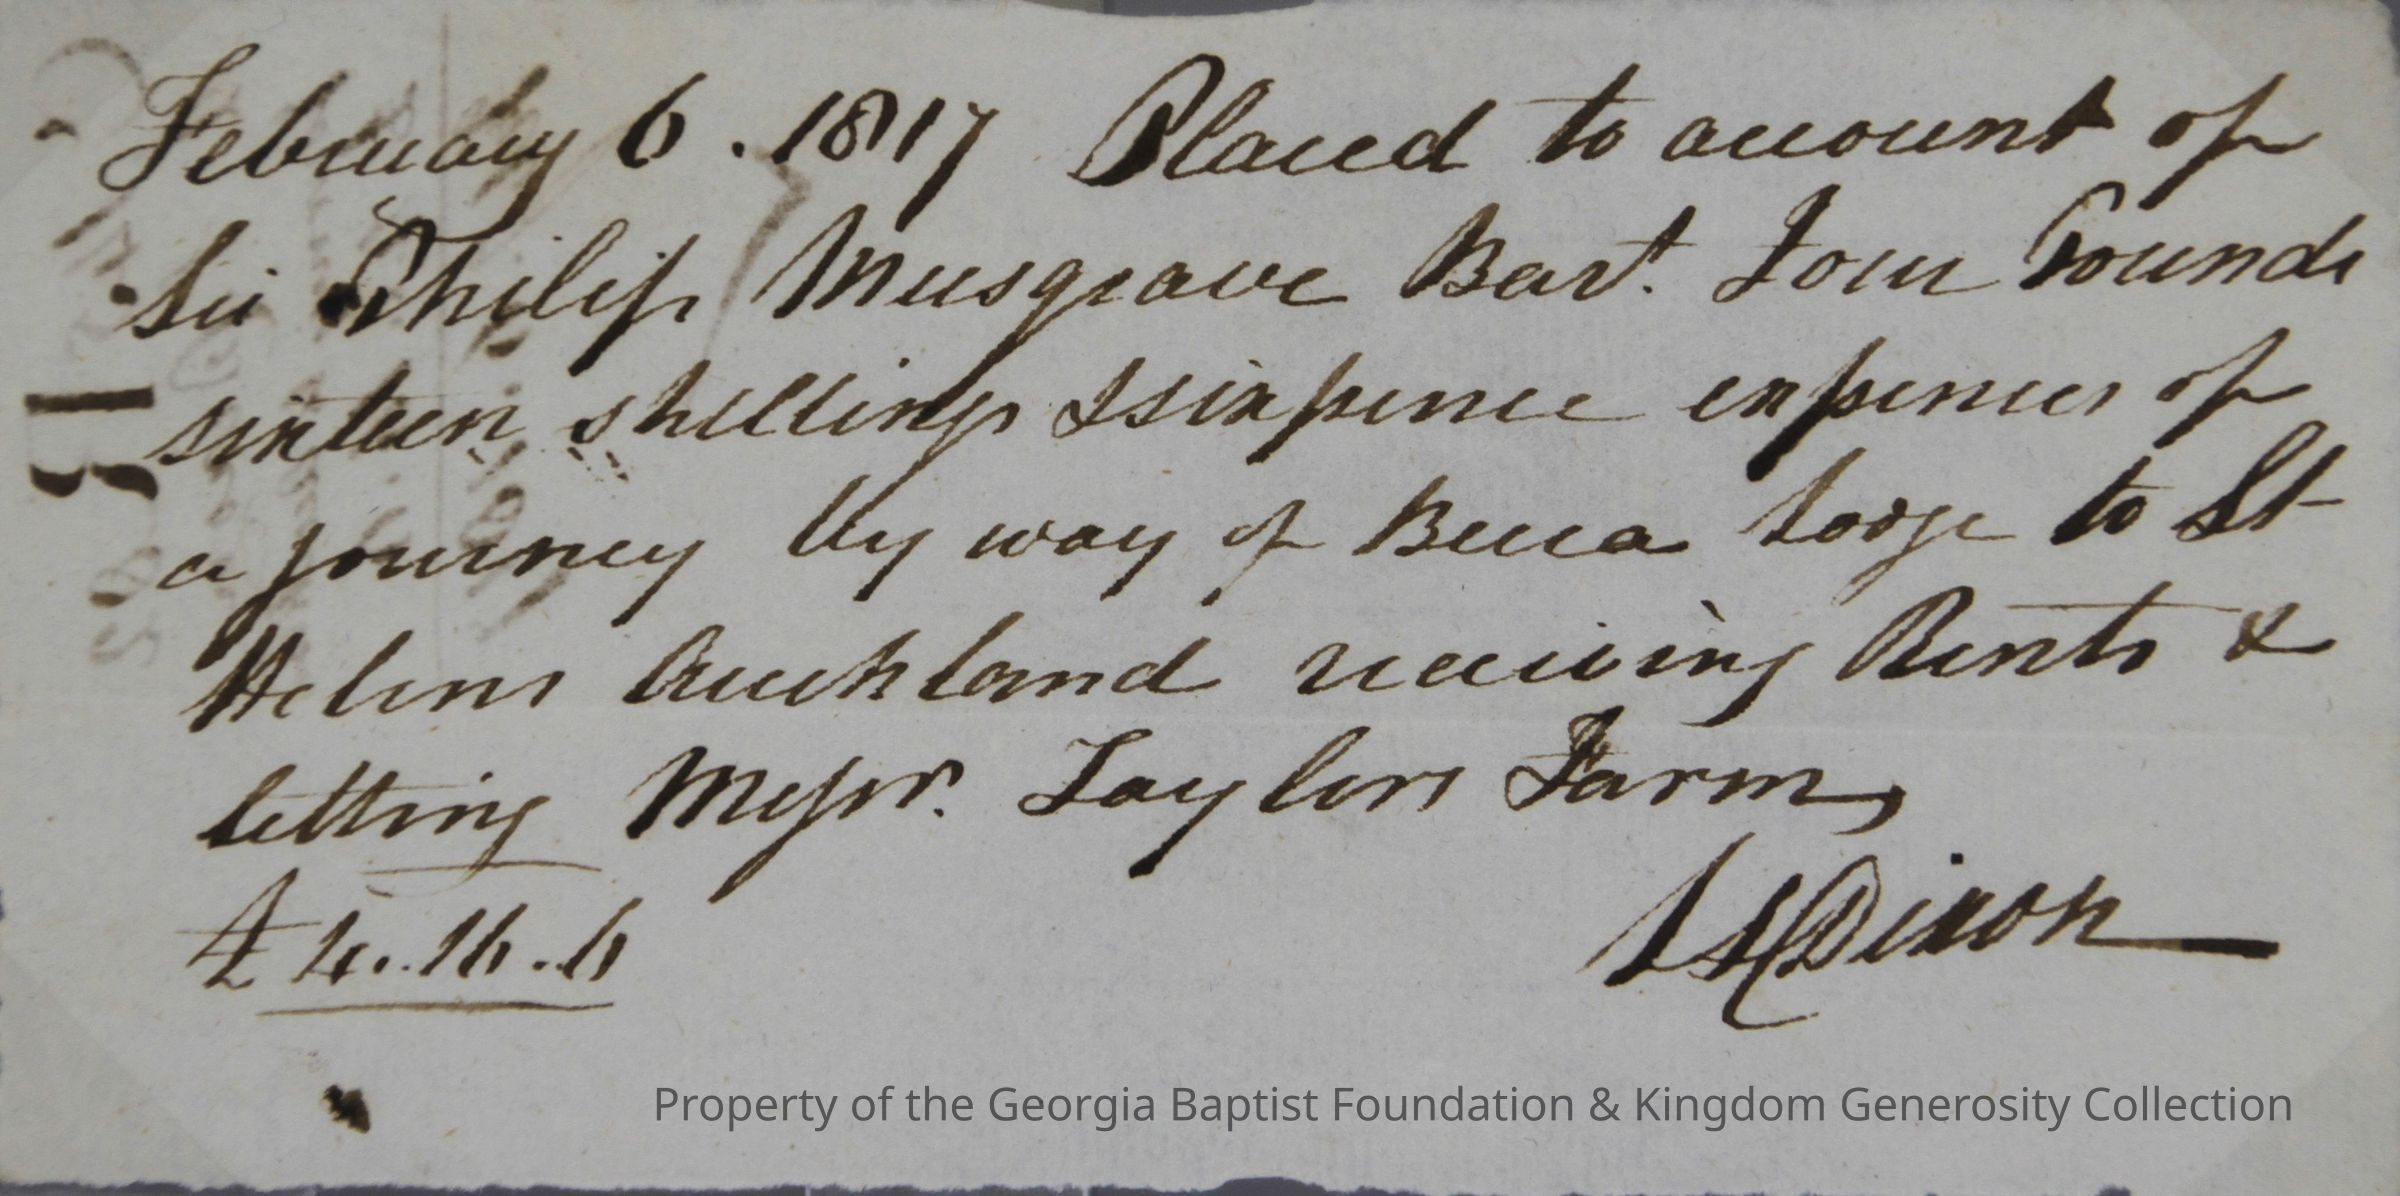 February 6. 1817 Placed to account of
Sir Philip Musgrave Bart. Four Pounds
sixteen shillings & sixpence expences of
a journey by way of Becca Lodge to St
Helens Auckland receiving Rents &
letting Messrs. Taylors Farm,
Dixon
£4..16.6
Property of the Georgia Baptist Foundation & Kingdom Generosity Collection